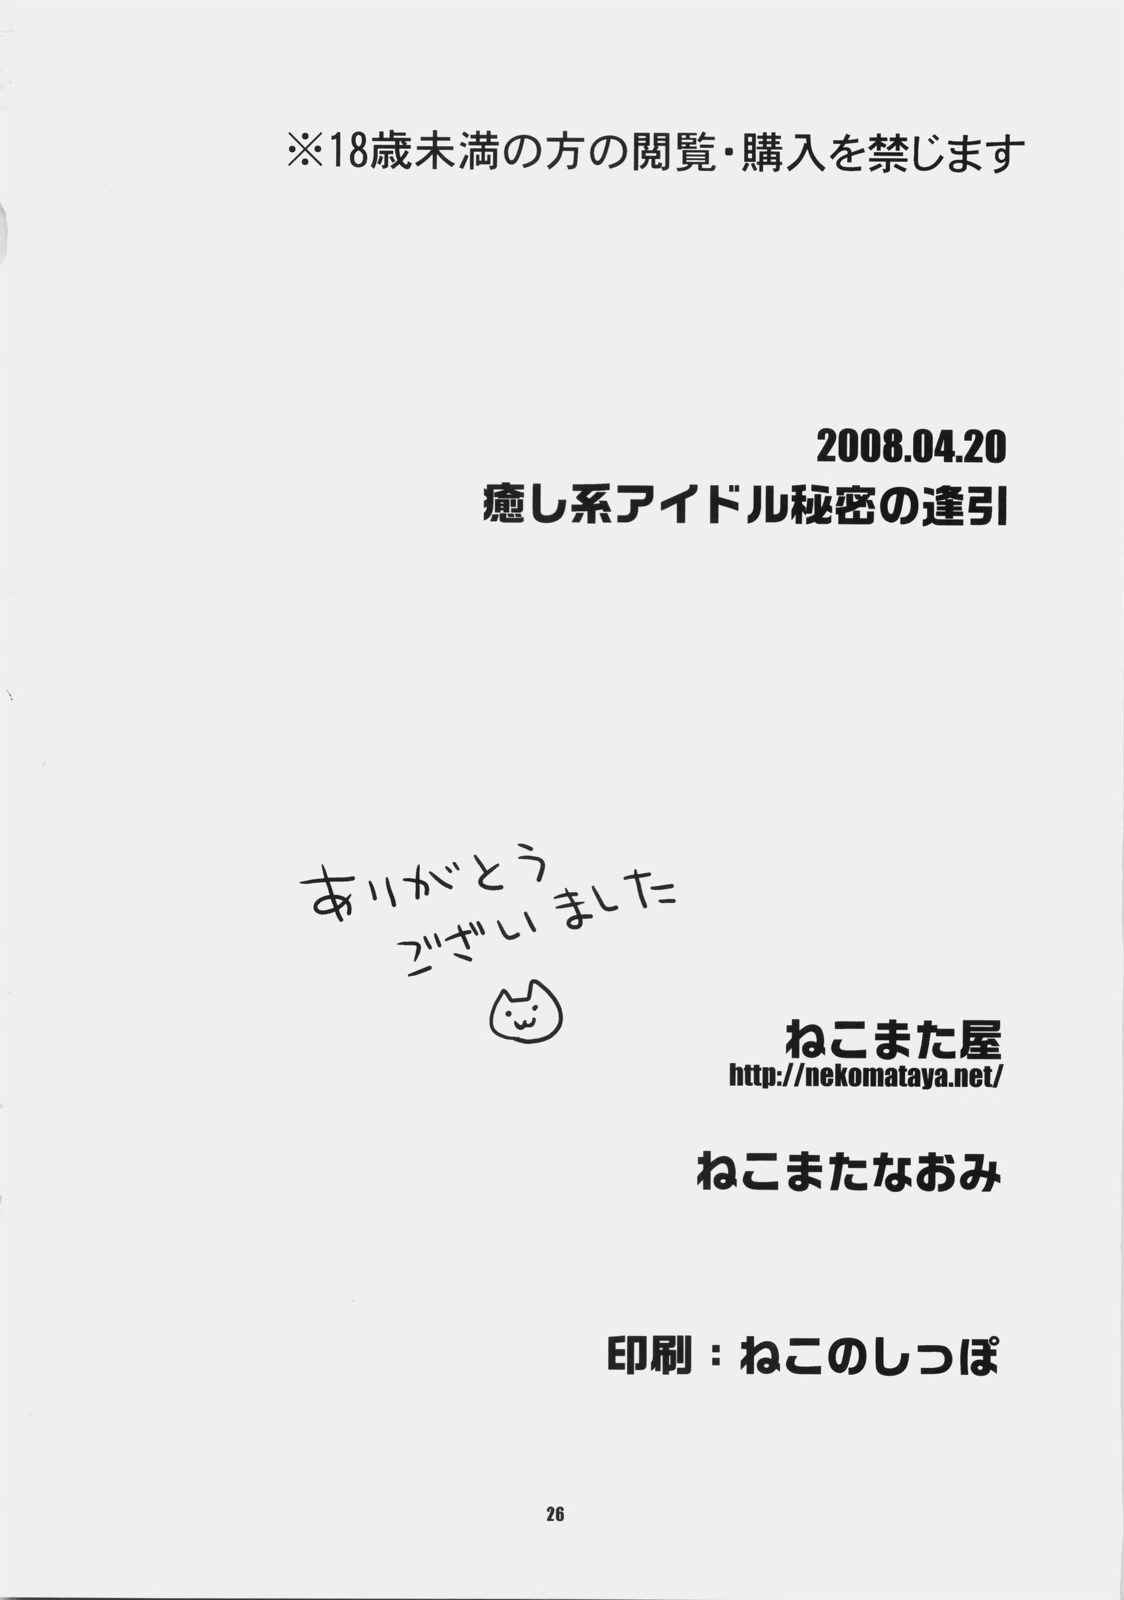 ※18歳未満の方の閲覧・購入を禁じます
2008.04.20
癒し系アイドル秘密の逢引
ありがとう
ございました
ねこまた屋
http://nekomataya.net/
ねこまたなおみ
印刷：ねこのしっぽ
26